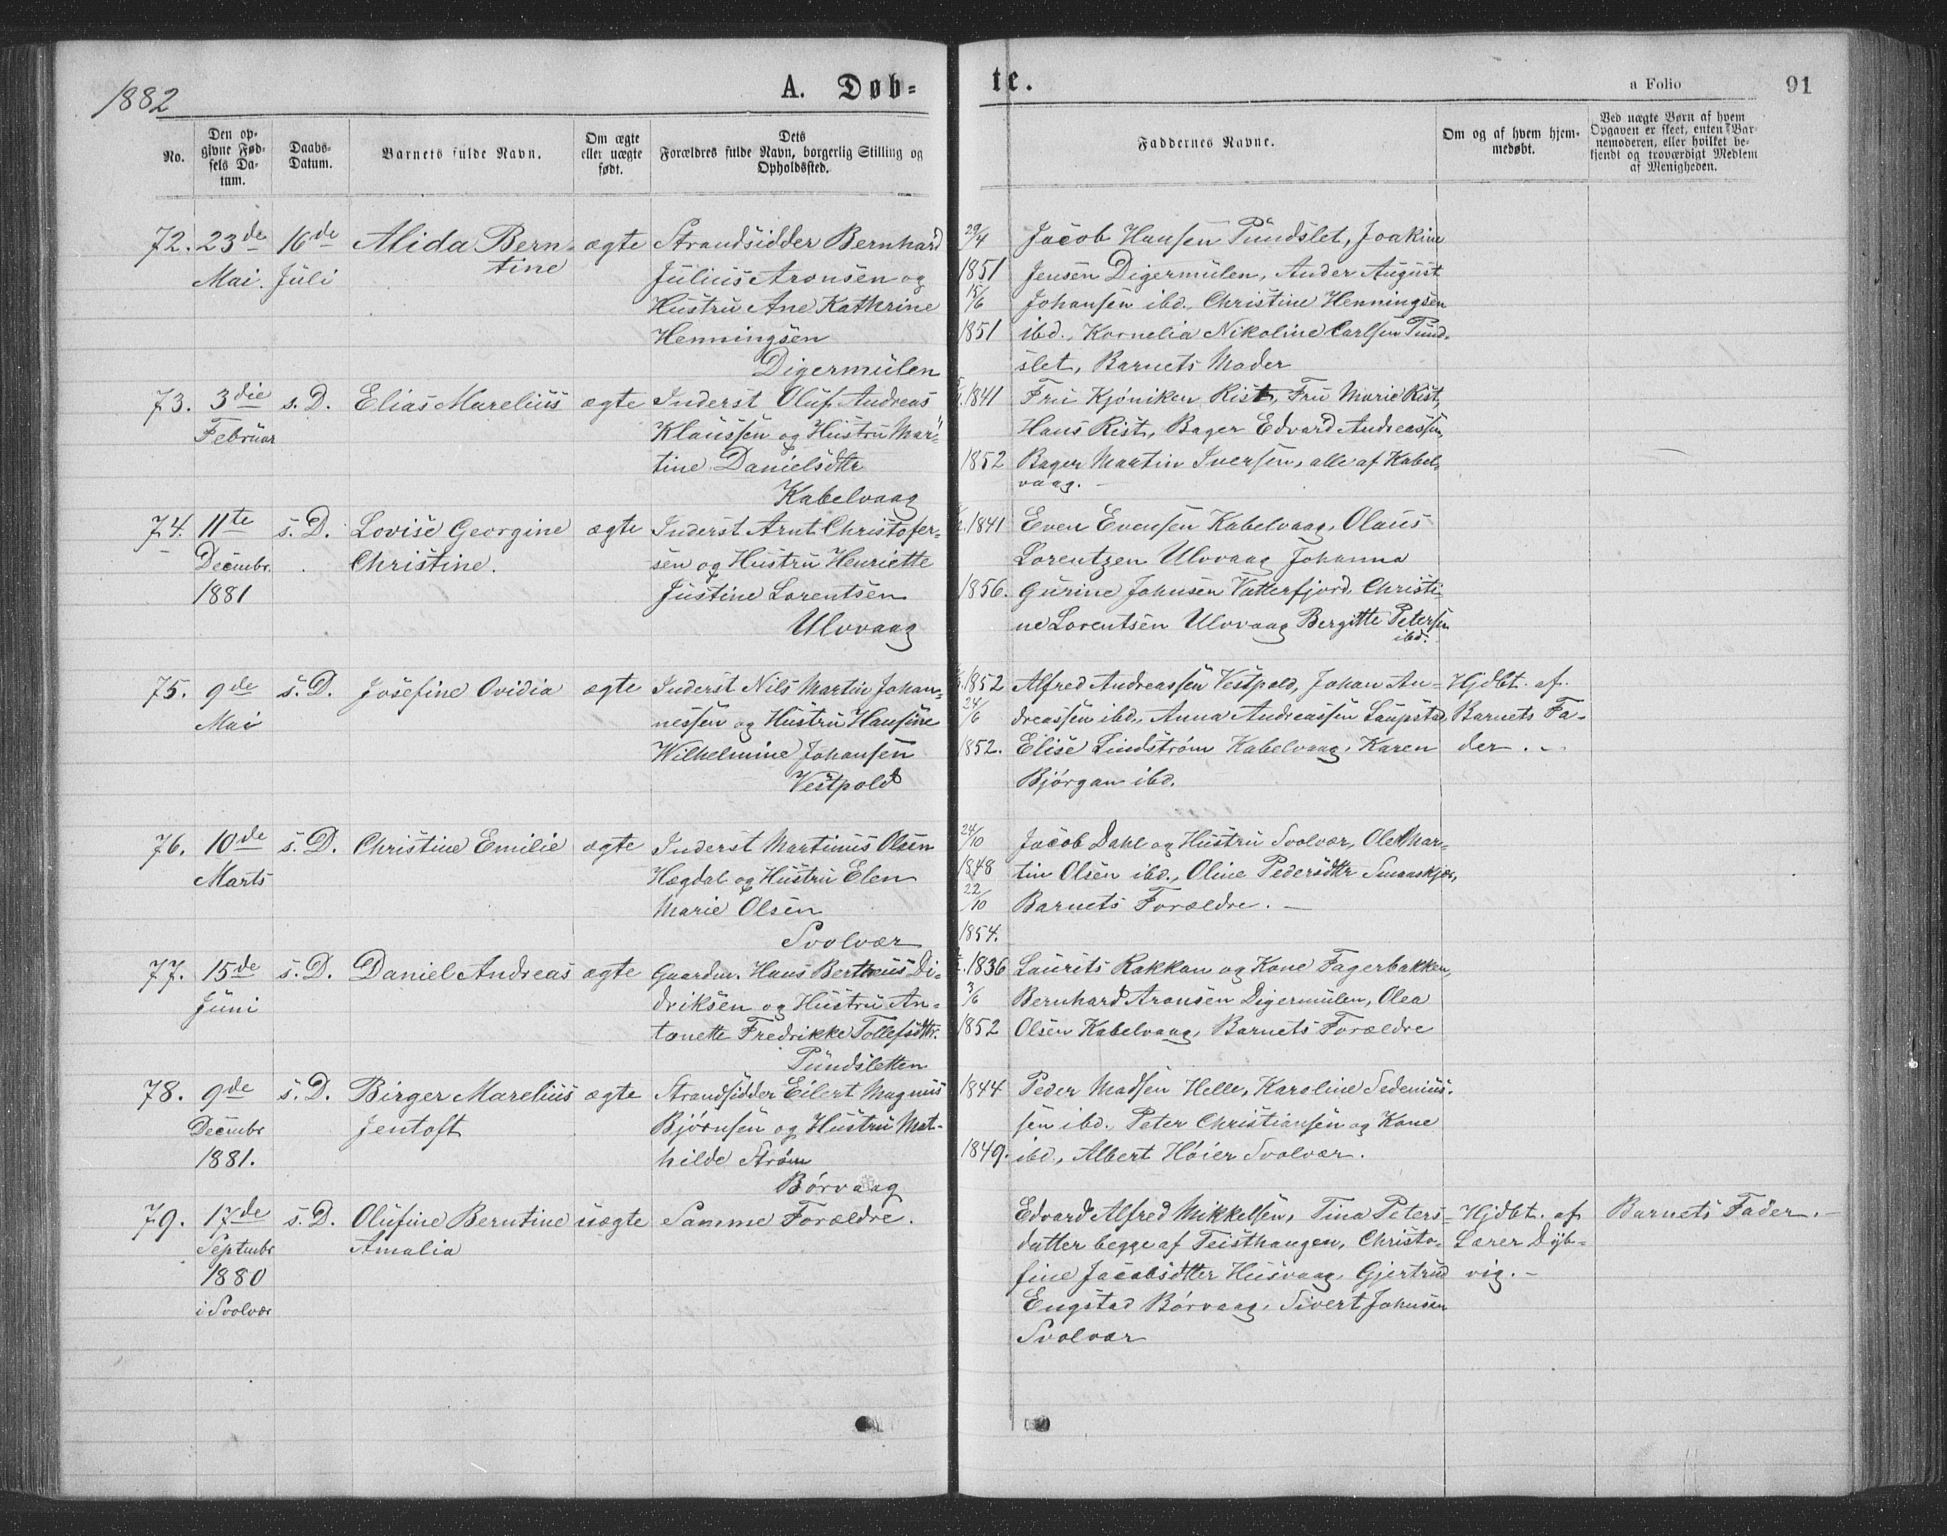 1882
A. Døb-
te.
a Folio 91
No.
Den op-
givne Fød-
sels Da-
tum.
Daabs-
Datum.
Barnets fulde Navn.
Om ægte
eller uægte
født.
Dets
Forældres fulde Navn, borgerlig Stilling og
Opholdssted.
Faddernes Navne.
Om og af hvem hjem-
medøbt.
Ved uægte Børn af hvem
Opgaven er skeet, enten Bar-
nemoderen, eller hvilket be-
kjendt og troværdigt Medlem
af Menigheden.
72. 23de 16de Alida Bern- ægte Strandsidder Bernhard
Mai. Juli tine Julius Aronsen og
Hustru Ane Kathrine
Henningsen
Digermulen
29/4 Jacob Hansen Pundslet, Joakim
1851 Jensen Digermulen, Ander August
15/6 Johansen ibd., Christine Henningsen
1851 ibd., Kornelia Nikoline Carlsen Pund-
slet, Barnets Moder
73. 3die s. D. Elias Marelius ægte Inderst Oluf Andreas
Februar Klaussen og Hustru Mar-
tine Danielsdtr
Kabelvaag
1841 Fru Kjøniken Rist, Fru Marie Rist,
Hans Rist, Bager Edvard Andreassen,
1852 Bager Martin Iversen, alle af Kabel-
vaag. -
74. 11te s. D. Lovise Georgine ægte Inderst Arnt Christofer-
Decmbr. Christine. sen og Hustru Henriette
1881 Justine Lorentsen
Ulvvaag
1841 Even Evensen Kabelvaag, Olaus
Lorentzen Ulvvaag Johanna
1856. Gurine Johnsen Vatterfjord, Christi-
ne Lorentsen Ulvvaag Bergitte Petersen
ibd.
75. 9de s. D. Josefine Ovidia ægte Inderst Nils Martin Johan-
Mai nessen og Hustru Hansine
Wilhelmine Johansen
Vestpold
1852 Alfred Andreassen Vestpold, Johan An- Hjdbt. af
24/6 dreassen ibd., Anna Andreassen Laupstad, Barnets Fa-
1852. Elise Lindstrøm Kabelvaag, Karen der. -
Bjørgan ibd.
76. 10de s. D. Christine Emilie ægte Inderst Martinus Olsen
Marts Hægdal og Hustru Elen
Marie Olsen
Svolvær
24/10 Jacob Dahl og Hustru Svolvær, Ole Mar-
1848 tin Olsen ibd., Oline Pedersdtr Smaaskjær,
22/10 Barnets Forældre. -
1854.
77. 15de s. D. Daniel Andreas ægte Gaardm. Hans Bertheus Di-
Juni driksen og Hustru An-
tonette Fredrikke Tollefsdtr.
Pundsletten
1836 Laurits Rakkan og Kone Fagerbakken,
3/6 Bernhard Aronsen Digermulen, Olea
1852 Olsen Kabelvaag, Barnets Forældre
78. 9de s. D. Birger Marelius ægte Strandsidder Eilert Magnus
Decmbr Jentoft Bjørnsen og Hustru Mat-
1881. hilde Strøm
Børvaag
1844 Peder Madsen Helle, Karoline Sedenius-
sen ibd. Peter Christiansen og Kone
1849. ibd., Albert Høier Svolvær.
79. 17de s. D. Olufine Berntine uægte Samme Forældre.
Septmbr Amalia
1880
i Svolvær
Edvard Alfred Mikkelsen, Tina Peters- Hjdbt. af Barnets Fader. -
datter begge af Teisthaugen, Christo- Lærer Dyb-
fine Jacobsdtter Husvaag, Gjertrud vig. -
Engstad Børvaag, Sivert Johnsen
Svolvær